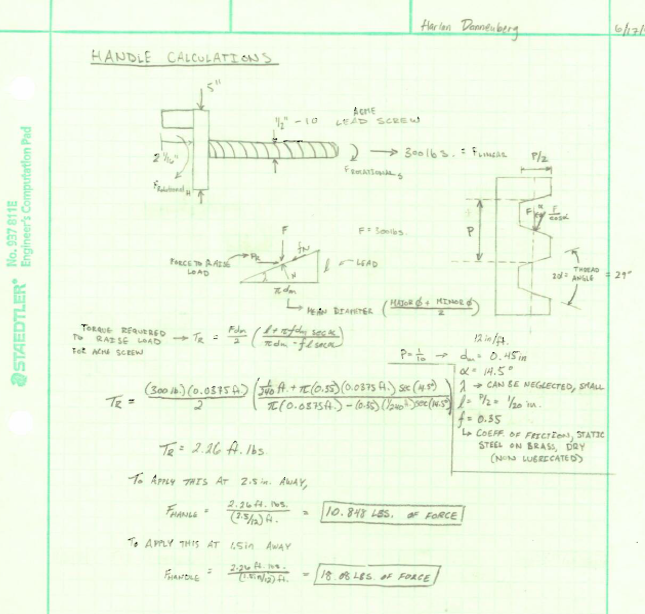 Harlan Donnenberg
HANDLE CALCULATIONS
5"
1/2" - 10 ACME
LEAD SCREW
2 1/16"
→ 300 lbs. = F LINEAR
F ROTATIONAL S
F Rotational H
P/2
F
N
F/cosα
P
2α = THREAD ANGLE = 29°
F
F = 300 lbs
FORCE TO RAISE LOAD
PR
fN
N
λ
l ← LEAD
π dm
↳ MEAN DIAMETER (MAJOR Ø + MINOR Ø / 2)
TORQUE REQUIRED TO RAISE LOAD FOR ACME SCREW → TR = Fdm/2 (l + πfdm secα / πdm - fl secα)
P = 1/10 →
12 in/ft.
dm = 0.45 in
α = 14.5°
λ → CAN BE NEGLECTED, SMALL
l = P/2 = 1/20 in.
f = 0.35
↳ COEFF. OF FRICTION, STATIC
STEEL ON BRASS, DRY
(NON LUBRICATED)
TR = (300 lb.)(0.0375 ft)/2 (1/240 ft. + π(0.35)(0.0375 ft.) sec(14.5°) / π(0.0375 ft.) - (0.35)(1/240 ft) sec(14.5°))
TR = 2.26 ft. lbs.
To APPLY THIS AT 2.5 in. AWAY,
F HANDLE = 2.26 ft. lbs. / (2.5/12) ft. = 10.848 LBS. OF FORCE
To APPLY THIS AT 1.5 in AWAY
F HANDLE = 2.26 ft. lbs. / (1.5/12) ft. = 18.08 LBS. OF FORCE
STAEDTLER® No. 937 811E
Engineer's Computation Pad